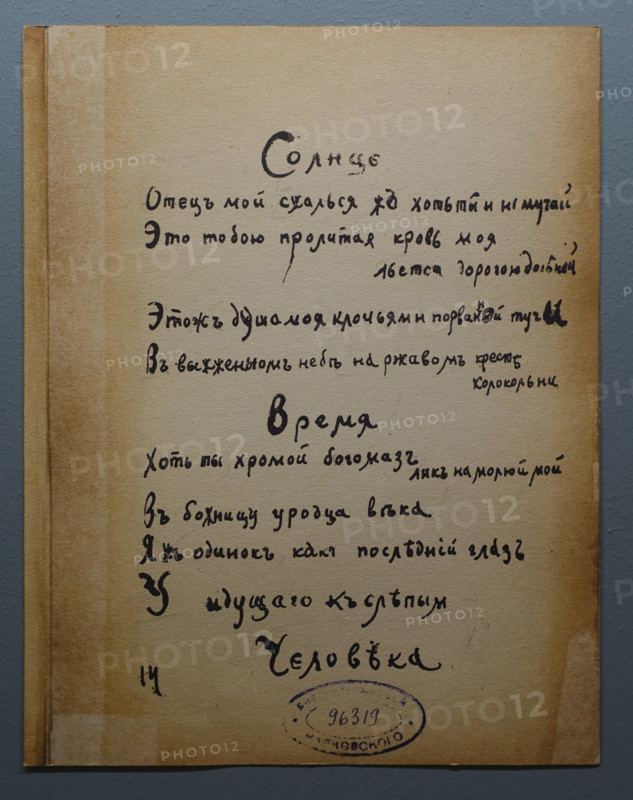 Солнце
Отецъ мой сжалься хоть ты и не мучай
Это тобою пролитая кровь моя
льется дорогою дольной
Этожъ душа моя клочьями порванной тучи
Въ выжженномъ небѣ на ржавомъ крестѣ
колокольни
Время
Хоть ты хромой богомазъ
ликъ намалюй мой
Въ божницу уродца вѣка
Я одинокъ какъ послѣдній глазъ
У идущаго къ слѣпым
Человѣка
14
96319
МАЯКОВСКОГО
PHOTO12